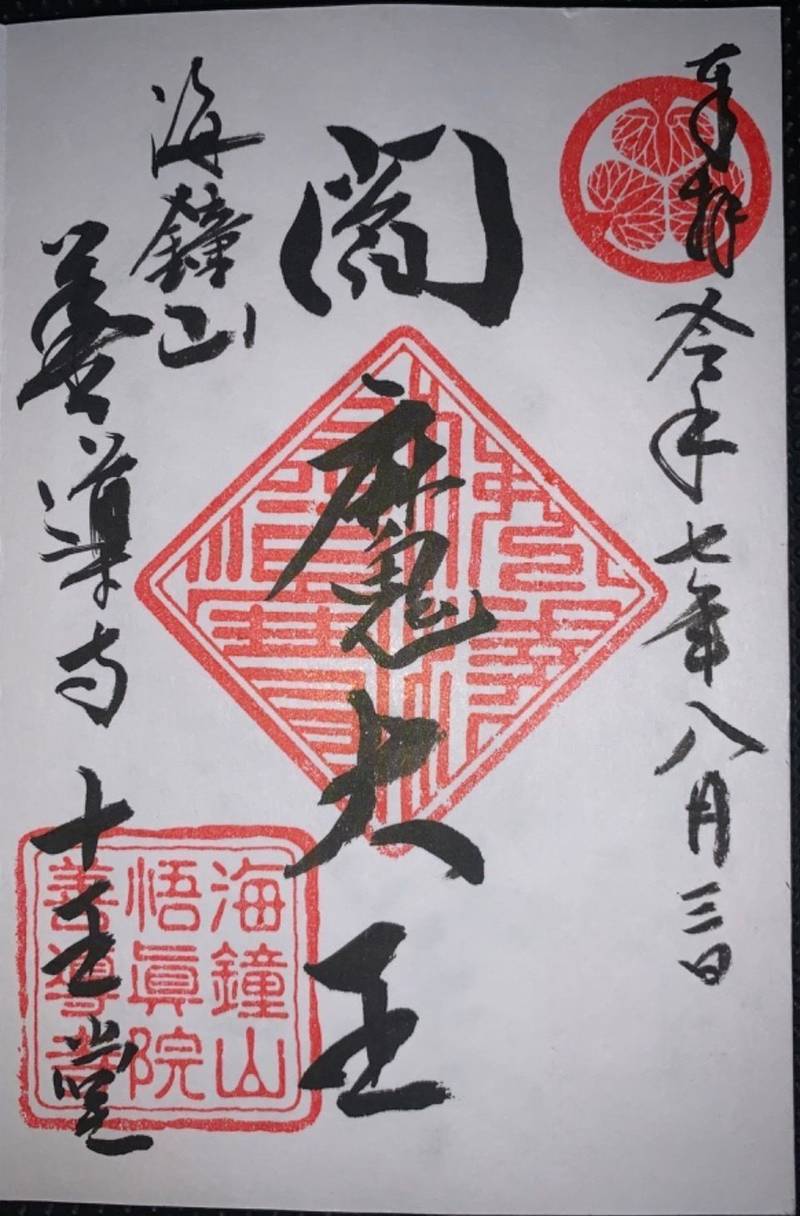 奉拝 令和七年八月三日
閻魔大王
海鐘山
善導寺 十王堂
海鐘山
悟眞院
善導寺